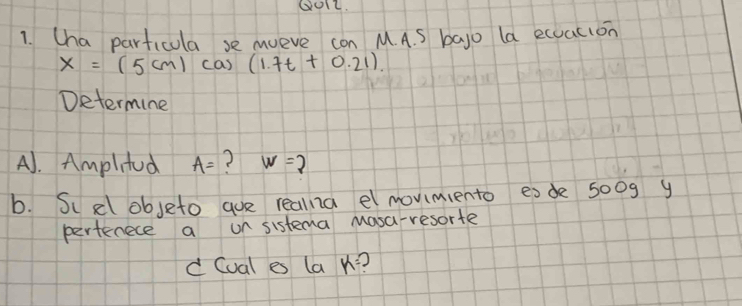 Quiz.
1. Una particula se mueve con M.A.S bajo la ecuación
x = (5 cm) cos (1.7t + 0.21).
Determine
A). Amplitud A=? W=?
b. Si el objeto que realiza el movimiento es de 500g y
pertenece a un sistema masa-resorte
¿Cual es la K=?